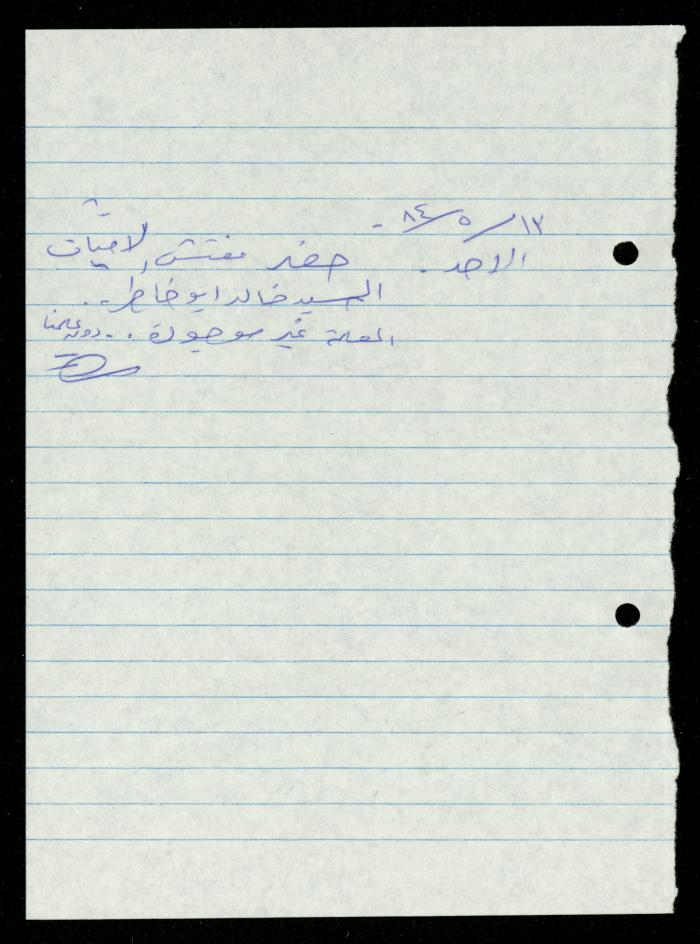 ١٣/٥/٨٤ -
الاحد - حضر مفتش الاميات
السيد خالد ابو خاطر ..
المعلمة غير موجودة .. دون علمنا